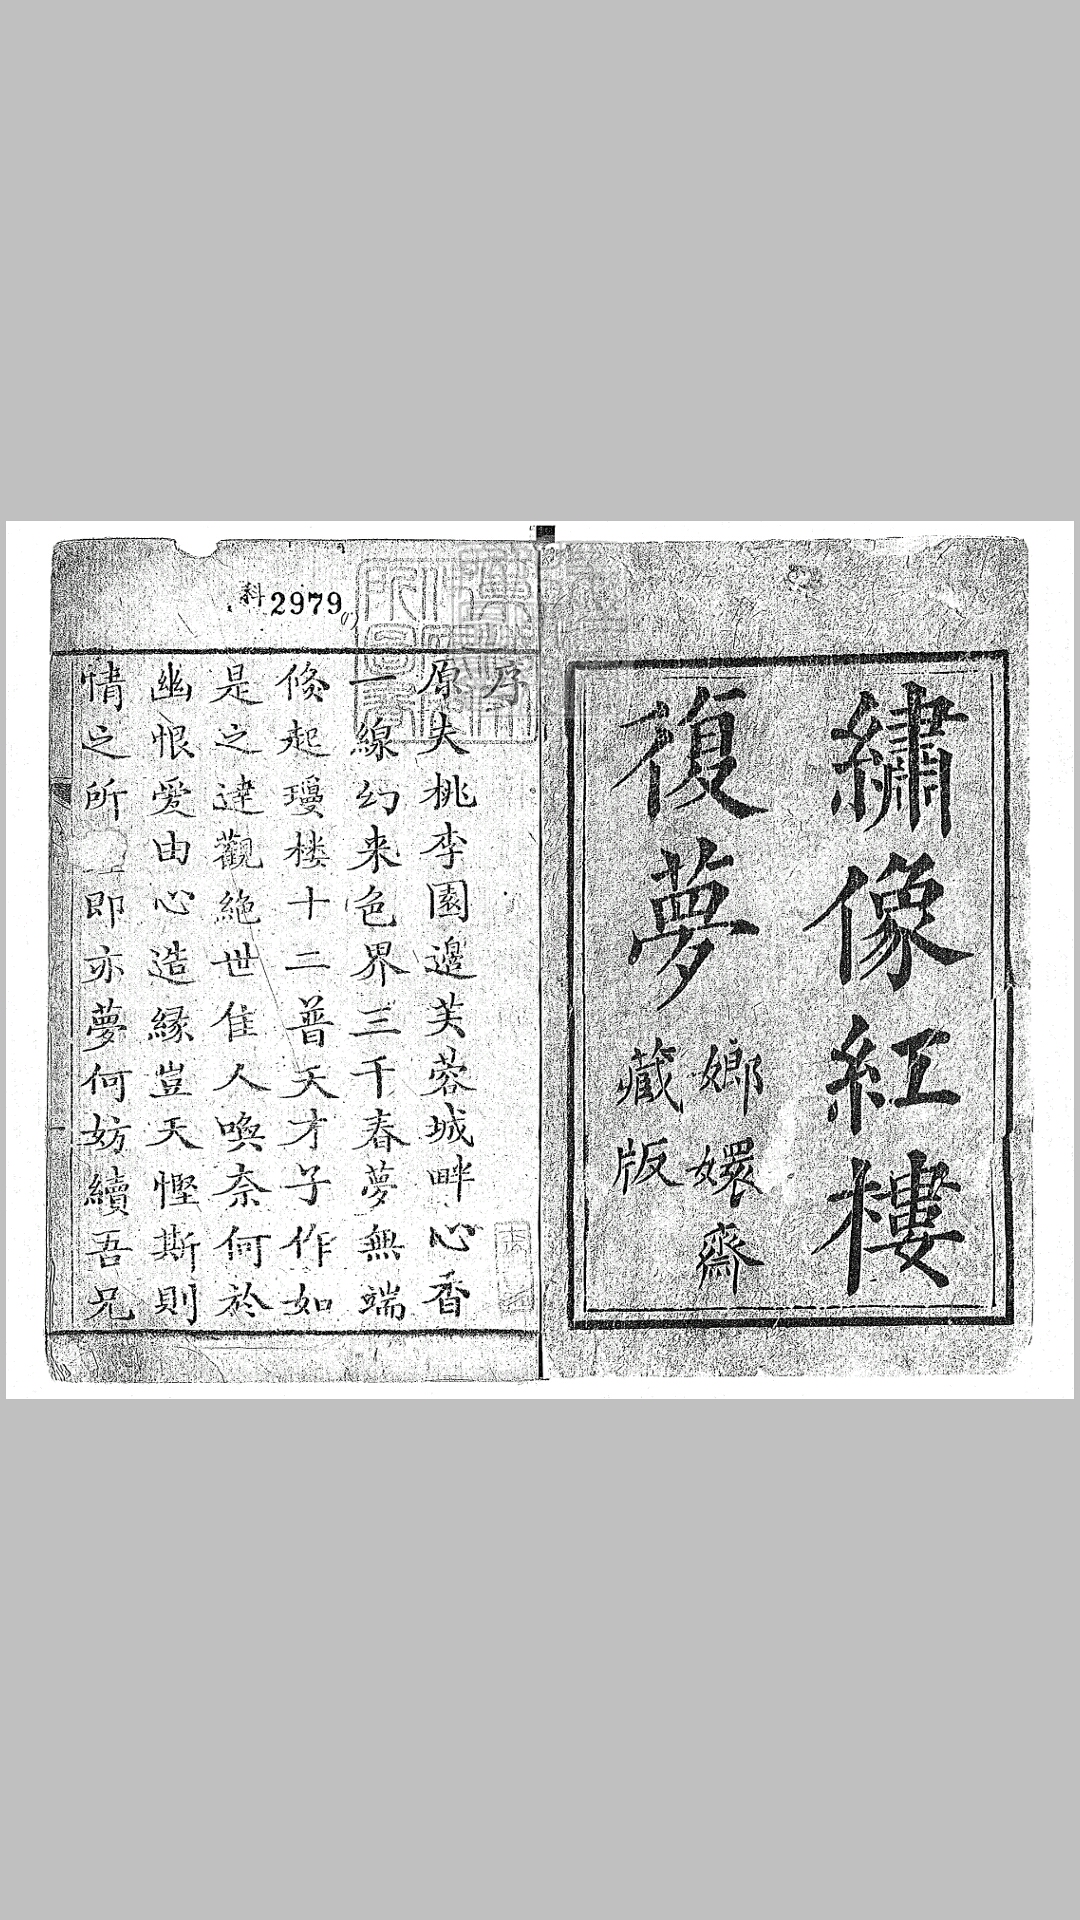 繡像紅樓
復夢
嫏嬛齋
藏版
2979
序
原夫桃李園邊芙蓉城畔心香
一線幻来色界三千春夢無端
倏起瓊楼十二普天才子作如
是之達觀絶世佳人喚奈何於
幽恨爱由心造縁豈天慳斯則
情之所 即亦夢何妨續吾兄